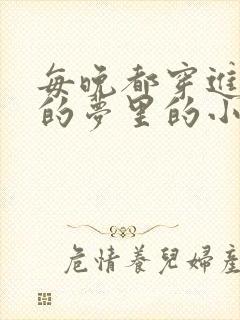 每晚都穿進
的夢里的小
危情養兒婦產